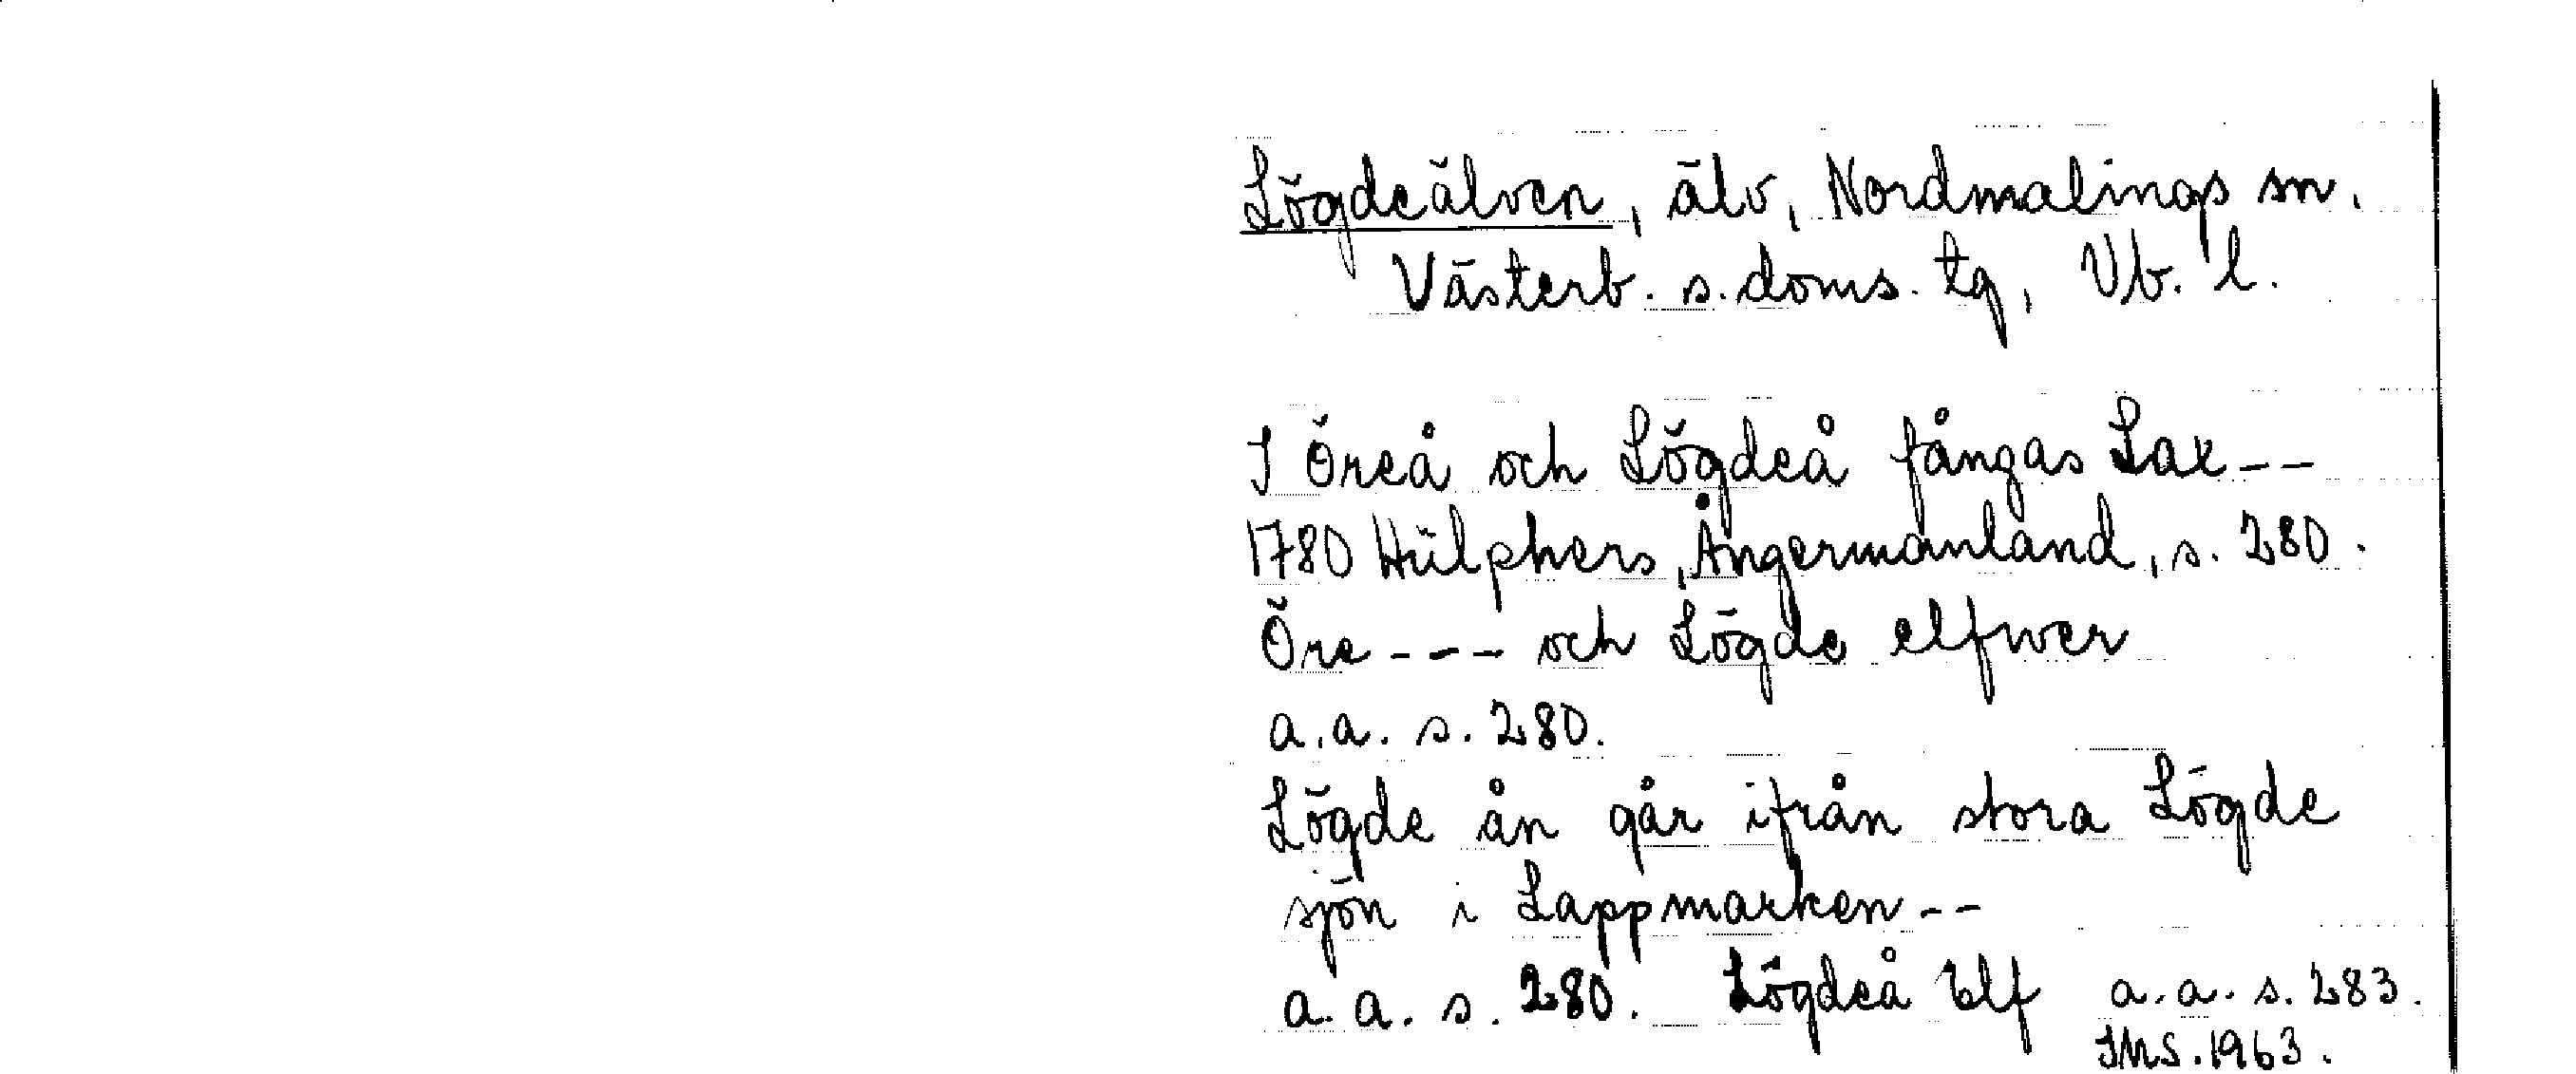 Lögdeälven, älv, Nordmalings sn.
Västerb. s. doms. tg, Vb. l.
I Öreå och Lögdeå fångas Lax--
1780 Hülphers, Ångermanland, s. 280.
Öre --- och Lögde elfwer
a.a. s. 280.
Lögde ån går ifrån stora Lögde
sjön i Lappmarken--
a.a. s. 280. Lögdeå Elf a.a. s. 283.
IMS. 1963.